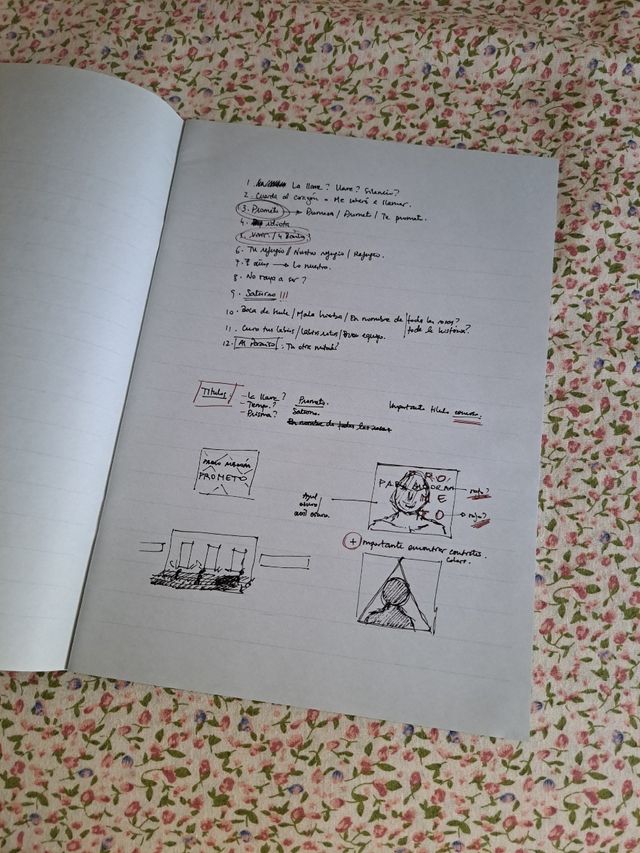 1. La llave? llave? Silencio?
2. Cuando al corazón = Me deberá e llamar.
3. Prometo → Promesa / Promet / Te promet.
4. idiota
5.
6. Tu refugio / Nuestro refugio / Refugio.
7. 8 días → Lo nuestro.
8. No vayas a ser?
9. Saturno !!!
10. Boca de / Mala hierba / En nombre de todas las rosas?
toda la historia?
11. Curo tus labios / Labios rotos / Buen equipo.
12. Al Paraíso. Tu otra mitad?
Titulos:
- La llave?
- Tiempo?
- Prisma?
Prometo.
Saturno.
En nombre de todas las rosas
Importante titulo
PROMETO
PRO
PA ALBORAN
ME
TO
roto?
rojo?
Azul
oscuro
+ Importante encontrar contrastes.
Color.